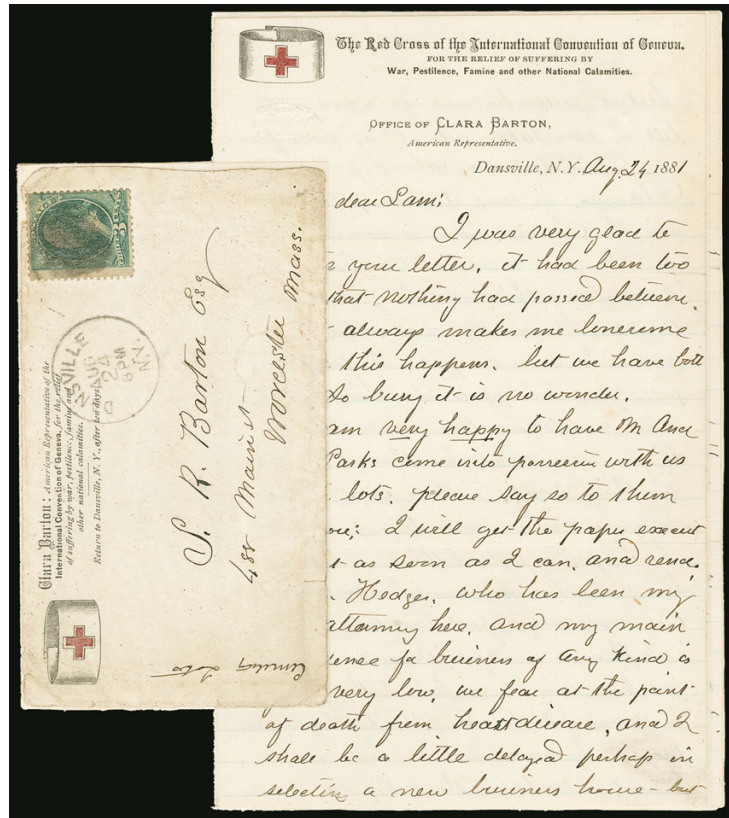 The Red Cross of the International Convention of Geneva.
FOR THE RELIEF OF SUFFERING BY
War, Pestilence, Famine and other National Calamities.
OFFICE OF CLARA BARTON,
American Representative.
Dansville, N.Y. Aug. 24 1881
dear Sam:
I was very glad to
your letter, it had been too
that nothing had passed between.
always makes me lonesome
this happens. but we have both
so busy it is no wonder.
am very happy to have Mr And
Parks come into possession with us
lots. please say so to them
I will get the paper execut
as soon as I can, and send.
Hedges, who has been my
attorney here, and my main
for business of any kind is
very low, we fear at the point
of death from heart disease, and I
shall be a little delayed perhaps in
selecting a new business house - but
S. R. Barton Esq
Main st
Worcester Mass.
NSVILLE
AUG
24
6PM
N.Y.
Clara Barton: American Representative of the
International Convention of Geneva, for the relief
of suffering by war, pestilence, famine and
other national calamities.
Return to Dansville, N. Y., after ten days.
Cemetery Lots